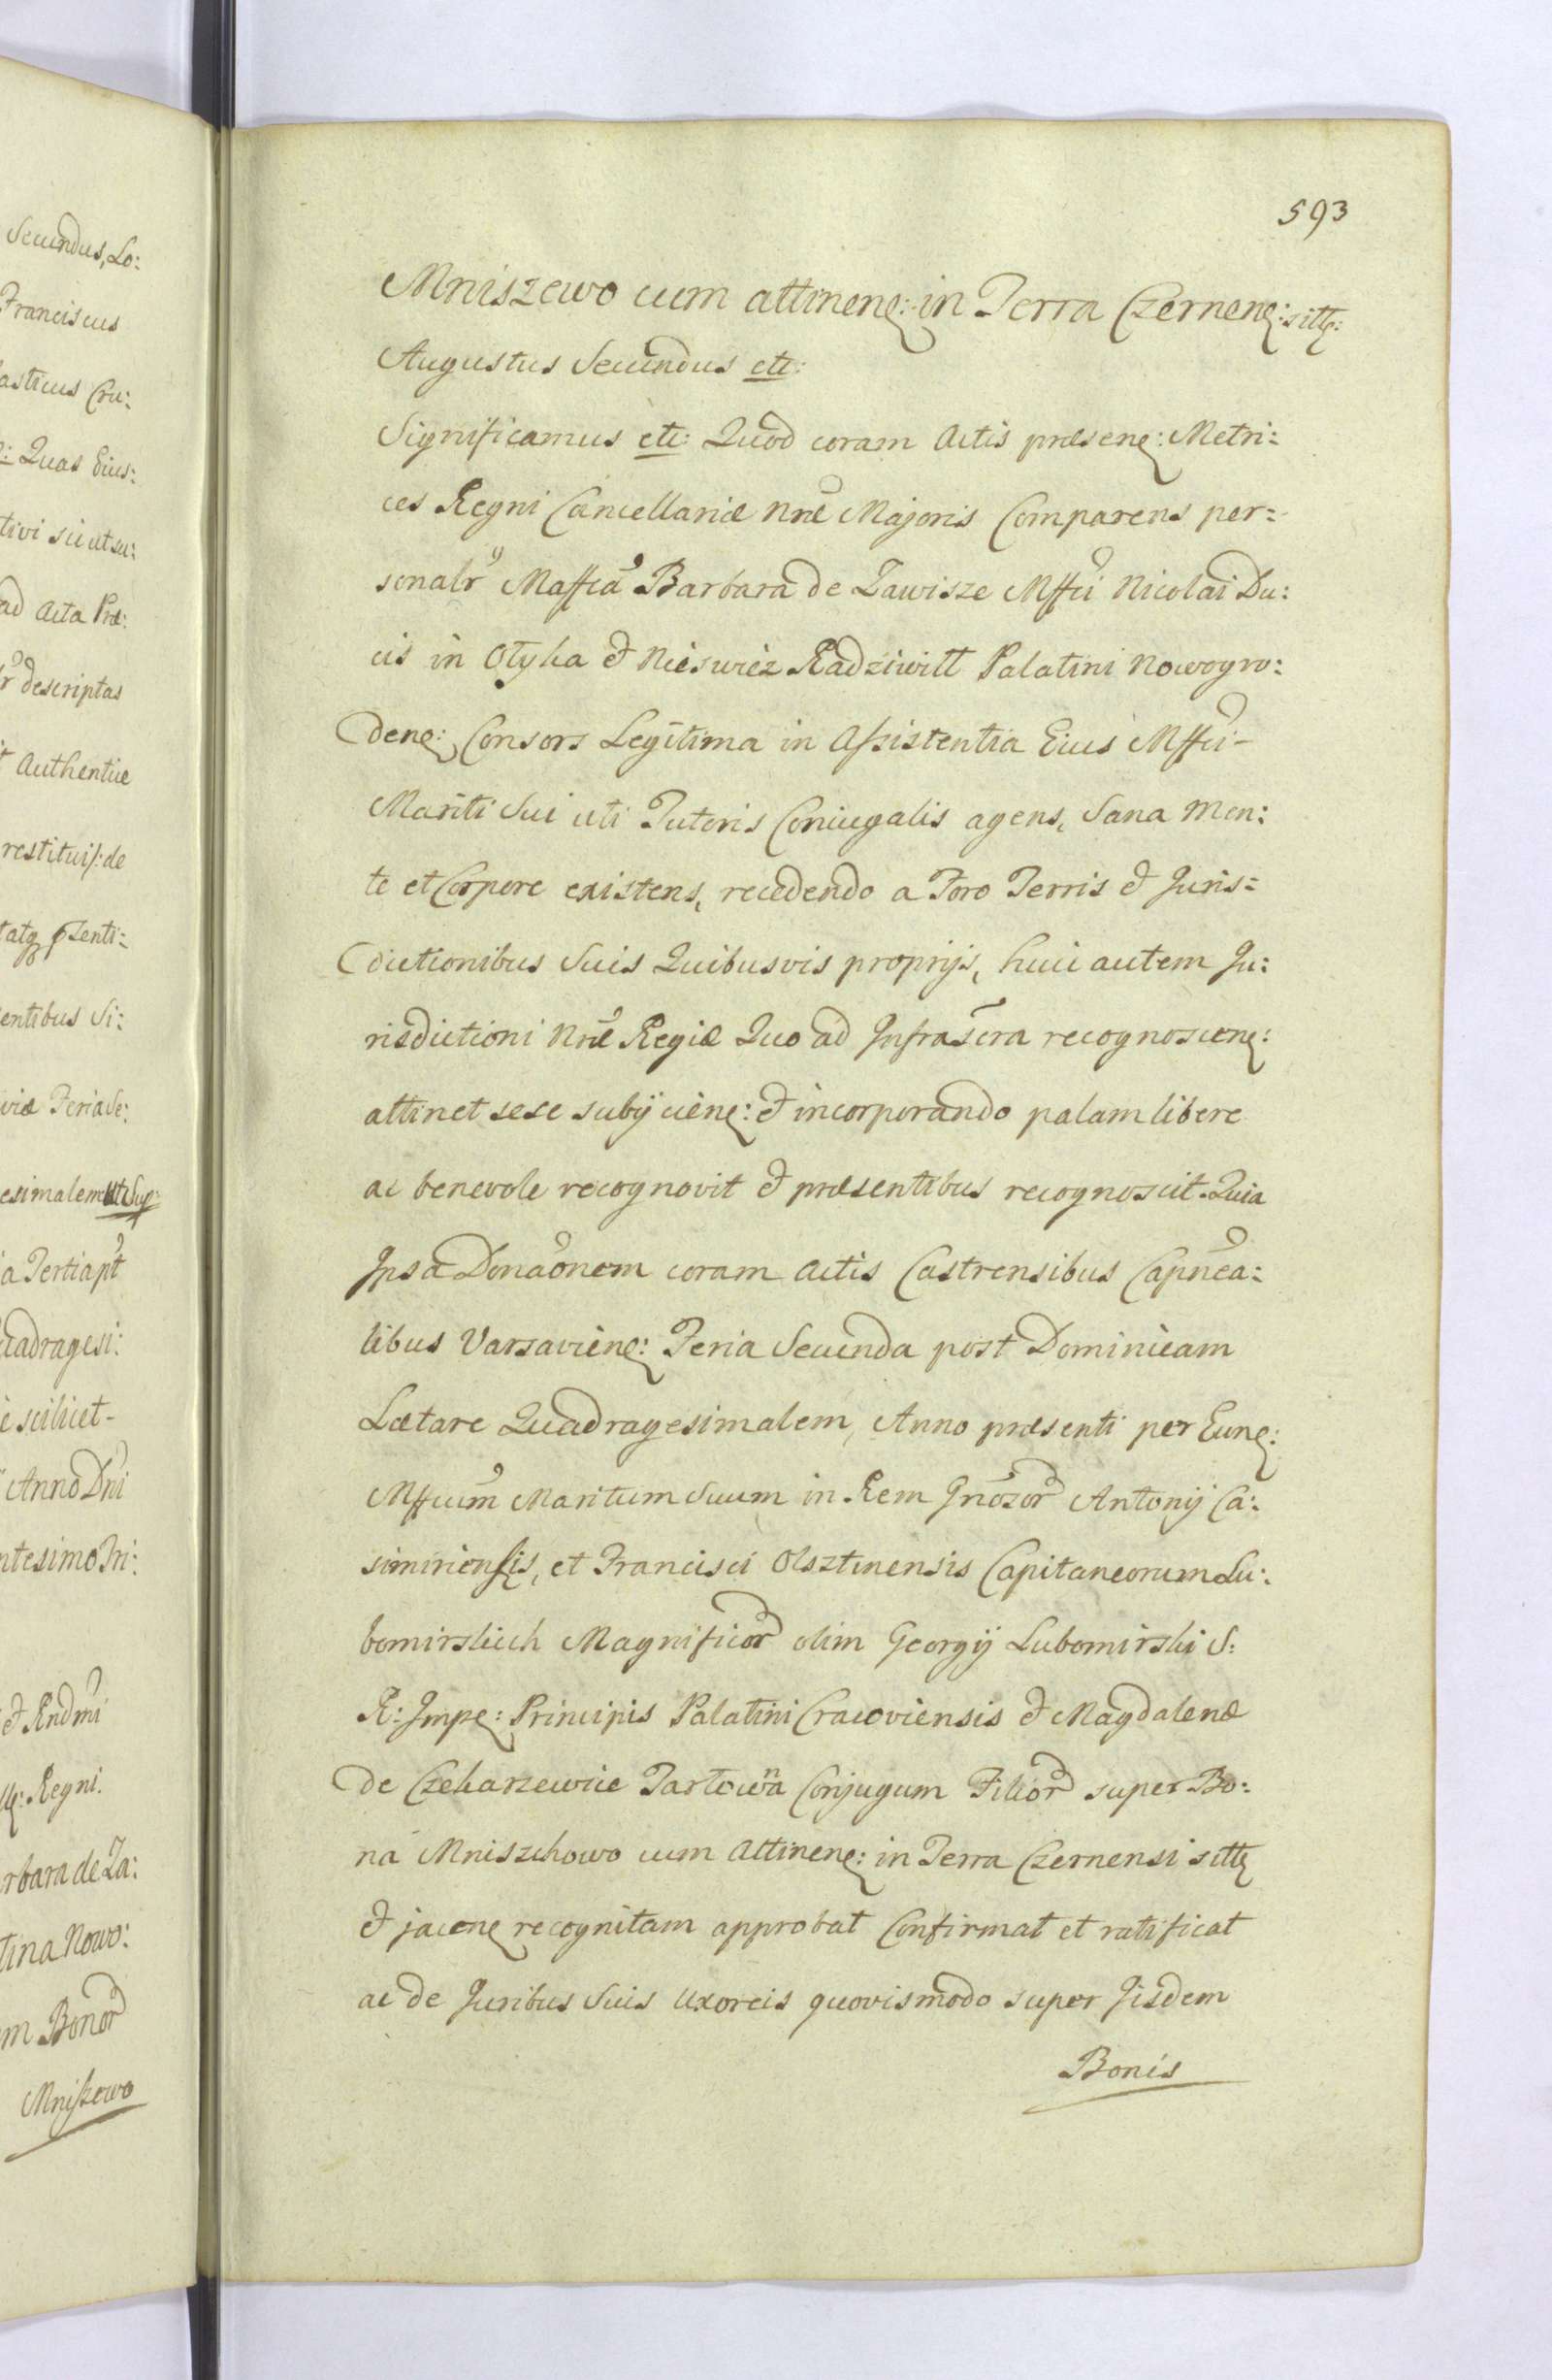 Secundus, Lo:
Franciscus
asticus Cra:
: Quas Eius:
tivi sicut su:
ad Acta Præ:
descriptas
Authentice
restituit: de
entibus Si:
viæ Feria Se:
esimalem
a Tertia pt
uadragesi:
e scilicet-
Anno Dni
ntesimo Tri:
et Rndmi
Regni.
rbara de Za:
tina Nowo:
m Bonor
Mniszewo
593
Mniszewo cum attinen: in Terra Czernen: sitt:
Augustus Secundus etc:
Significamus etc: Quod coram Actis præsen: Metri:
ces Regni Cancellariæ Nræ Majoris Comparens per:
sonalr Maffca Barbara de Zawisze Mffci Nicolai Du:
cis in Olyka et Nieswież Radziwitt Palatini Nowogro:
den: Consors Legitima in Assistentia Eius Mffci-
Mariti Sui uti Tutoris Coniugalis agens, Sana Men:
te et Corpore existens, recedendo a Foro Terris et Juris:
dictionibus Suis Quibusvis proprijs, huic autem Ju:
risdictioni Nræ Regiæ Quo ad Infrascra recognoscen:
attinet sese subijcien: et incorporando palam libere
ac benevole recognovit et præsentibus recognoscit. Quia
Ipsa Donaonem coram Actis Castrensibus Capnea:
libus Varsavien: Feria Secunda post Dominicam
Lætare Quadragesimalem, Anno præsenti per Eun:
Mffcum Maritum Suum in Rem Gnosor Antonij Ca:
simiriensis, et Francisci Olsztinensis Capitaneorum Lu:
bomirskich Magnificor olim Georgij Lubomirski S:
R: Imp: Principis Palatini Cracoviensis et Magdalenæ
de Czekarzewice Tartowna Conjugum Filior super Bo:
na Mniszchowo cum Attinen: in Terra Czernensi sitt
et jacen recognitam approbat Confirmat et ratificat
ac de Juribus Suis Uxoreis quovismodo super Iisdem
Bonis